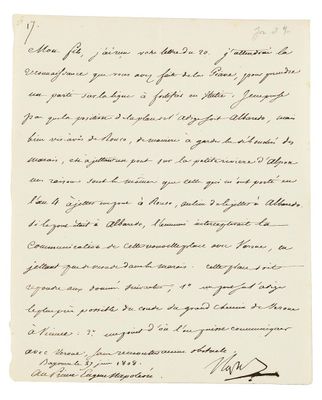 17.
Mon fils, j'ai reçu votre lettre du 20. j'attendrai la
reconnaissance que vous avez fait de la Piave, pour prendre
un parti sur la ligne à fortifier en Italie. Je ne pense
pas que la position de la place soit Albaredo, mais
bien vis-à-vis de Ronco, de manière à garder le débouché des
marais, en jettant un pont sur la petite rivière d'Alpon
les raisons sont les mêmes que celles qui m'ont porté en
l'an 4 à jetter un pont à Ronco, au lieu de le jetter à Albaredo
Si le pont était à Albaredo, l'ennemi intercepterait la
communication de cette nouvelle place avec Verone, en
jettant peu de monde dans les marais. cette place doit
répondre aux données suivantes, 1° un pont sur l'adige
le plus près possible du coude du grand chemin de Verone
à Vicence. 2° un point d'où l'on puisse communiquer
avec Verone, sans rencontrer aucun obstacle.
Bayonne le 27 juin 1808.
Au Prince Eugène Napoléon